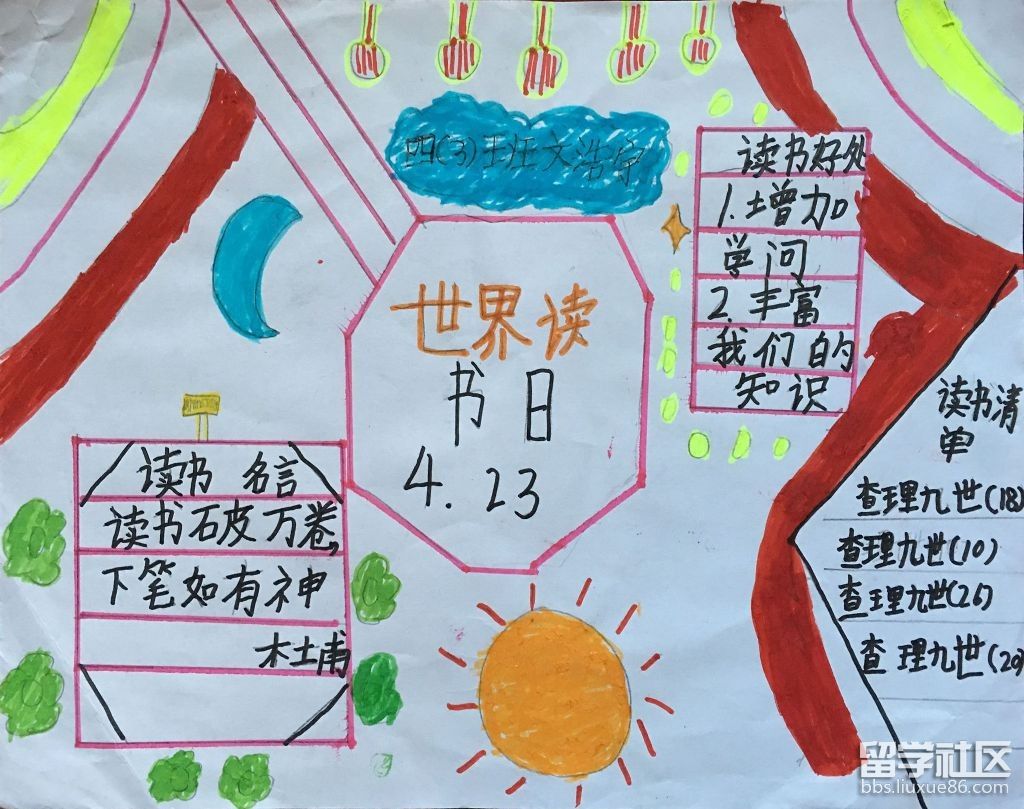 四(3)王班文浩宇
世界读
书日
4.23
读书好处
1.增加
学问
2.丰富
我们的
知识
读书名言
读书破万卷,
下笔如有神
杜甫
读书清
单
查理九世(18)
查理九世(10)
查理九世(26)
查理九世(20)
留学社区
bbs.liuxue86.com